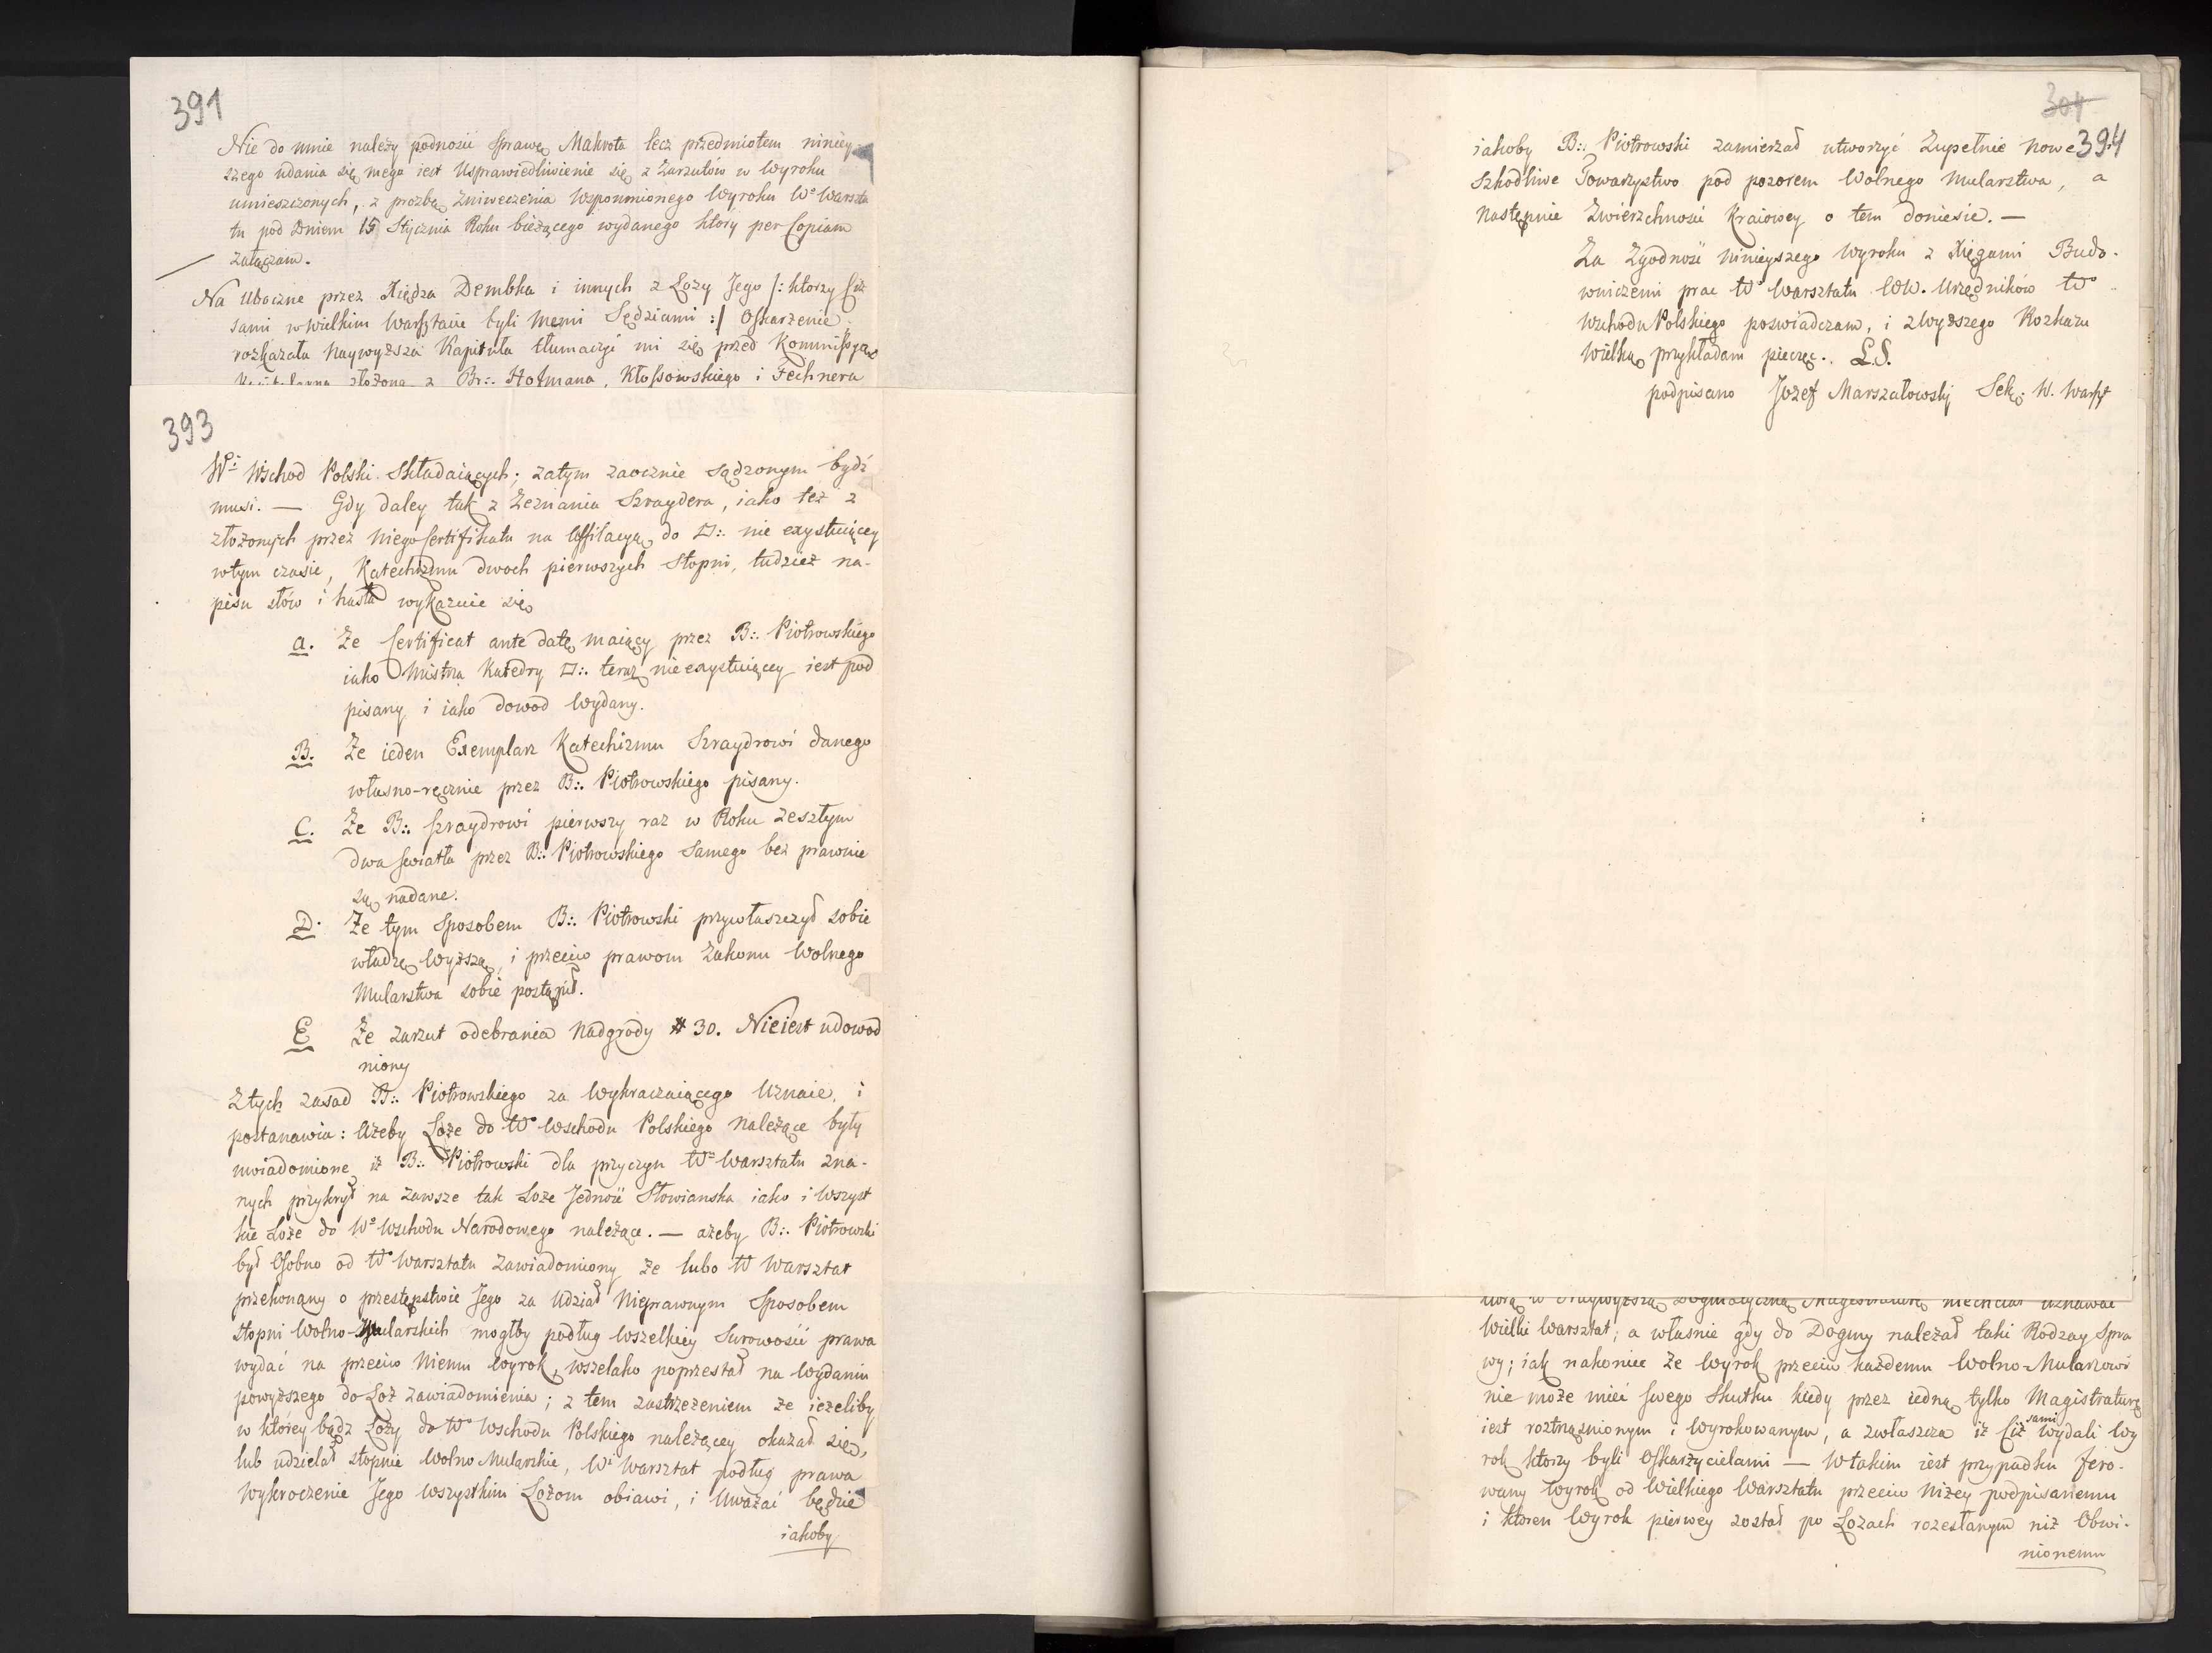 391
Nie do mnie należy podnosić sprawę Makrota lecz przedmiotem niniey
szego udania się mego iest Usprawiedliwienie się z Zarzutów w Wyroku
umieszczonych, z prozbą Zniweczenia Wspomnionego Wyroku Wo Warszta
tu pod Dniem 15 Stycznia Roku bieżącego wydanego który per Copiam
załączam.
Na Uboczne przez Xiędza Dembka i innych z Loży Jego /: którzy Ciż
sami w Wielkim Warsztacie byli Memi Sędziami :/ Oskarżenie
rozkazała Naywyższa Kapituła tłumaczyć mi się przed Kommissyą
złożoną z Br∴ Hofmana, Kłossowskiego i Fechnera
393
Wi Wschod Polski Składaiących; zatym zaocznie sądzonym bydź
musi. — Gdy daley tak z Zeznania Szraydera, iako też z
złożonych przez niego Certifikatu na Affilacyą do □∴ nie exystuiącey
w tym czasie, Katechizmu dwoch pierwszych Stopni, tudzież na-
pisu słów i hasła wykazuie się
a. Że Certificat ante datę maiący przez B∴ Piotrowskiego
iako Mistrza Katedry □∴ teraz nieexystuiącey iest pod
pisany i iako dowod Wydany.
B. Że ieden Exemplarz Katechizmu Szraydrowi danego
własno-ręcznie przez B∴ Piotrowskiego pisany.
C. Że B∴ Szraydrowi pierwszy raz w Roku zeszłym
dwa Swiatła przez B∴ Piotrowskiego Samego bez prawnie
są nadane.
D. Że tym Sposobem B∴ Piotrowski przywłaszczył sobie
władzę Wyższą, i przeciw prawom Zakonu Wolnego
Mularstwa sobie postąpił.
E Że zarzut odebrania Nadgrody # 30. Nieiest udowod
niony
Z tych zasad B∴ Piotrowskiego za Wykraczaiącego Uznaie, i
postanawia: Ażeby Loże do Wo Wschodu Polskiego należące były
uwiadomione iż B∴ Piotrowski dla przyczyn Wo Warsztatu zna-
nych przykrył na zawsze tak Loże Jedność Słowianska iako i Wszyst
kie Loże do Wo Wschodu Narodowego należące. — ażeby B∴ Piotrowski
był Osobno od Wo Warsztatu Zawiadomiony że lubo W Warsztat
przekonany o przestępstwie Jego za Udział Nieprawnym Sposobem
stopni Wolno-Mularskich mogłby podług Wszelkiey Surowości prawa
wydać na przeciw Niemu Wyrok, wszelako poprzestał na Wydaniu
powyższego do Loż Zawiadomienia; z tem zastrzeżeniem że ieżeliby
w którey bądz Loży do Wo Wschodu Polskiego należącey okazał się,
lub udzielał stopnie Wolno Mularskie, Wi Warsztat podług prawa
Wykroczenie Jego Wszystkim Lożom obiawi, i Uważać będzie
iakoby
304
394
iakoby B∴ Piotrowski zamierzał utworzyć Zupełnie nowe
Szkodliwe Towarzystwo pod pozorem Wolnego Mularstwa, a
następnie Zwierzchności Kraiowey o tem doniesie. —
Za Zgodność Ninieyszego Wyroku z Xięgami Budo-
wniczemi prac Wo Warsztatu WW. Urzędników Wo
Wschodu Polskiego poswiadczam, i z Wyższego Rozkazu
Wielką przykładam pieczęć. L.S.
podpisano Jozef Marszałowski Sek: W. Warszt
w Naywyższą Dogmatyczną Magistraturę niechciał uznawać
Wielki Warsztat; a własnie gdy do Dogmy należał taki Rodzay Spra
wy; iak nakoniec że Wyrok przeciw każdemu Wolno-Mularzowi
nie może mieć swego Skutku kiedy przez iedną tylko Magistraturę
iest roztrząsnionym i Wyrokowanym, a zwłaszcza iż Ciż sami Wydali Wy
rok którzy byli Oskarżycielami — W takim iest przypadku fero-
wany Wyrok od Wielkiego Warsztatu przeciw Niżey podpisanemu
i któren Wyrok pierwey został po Lożach rozesłanym niż Obwi-
nionemu